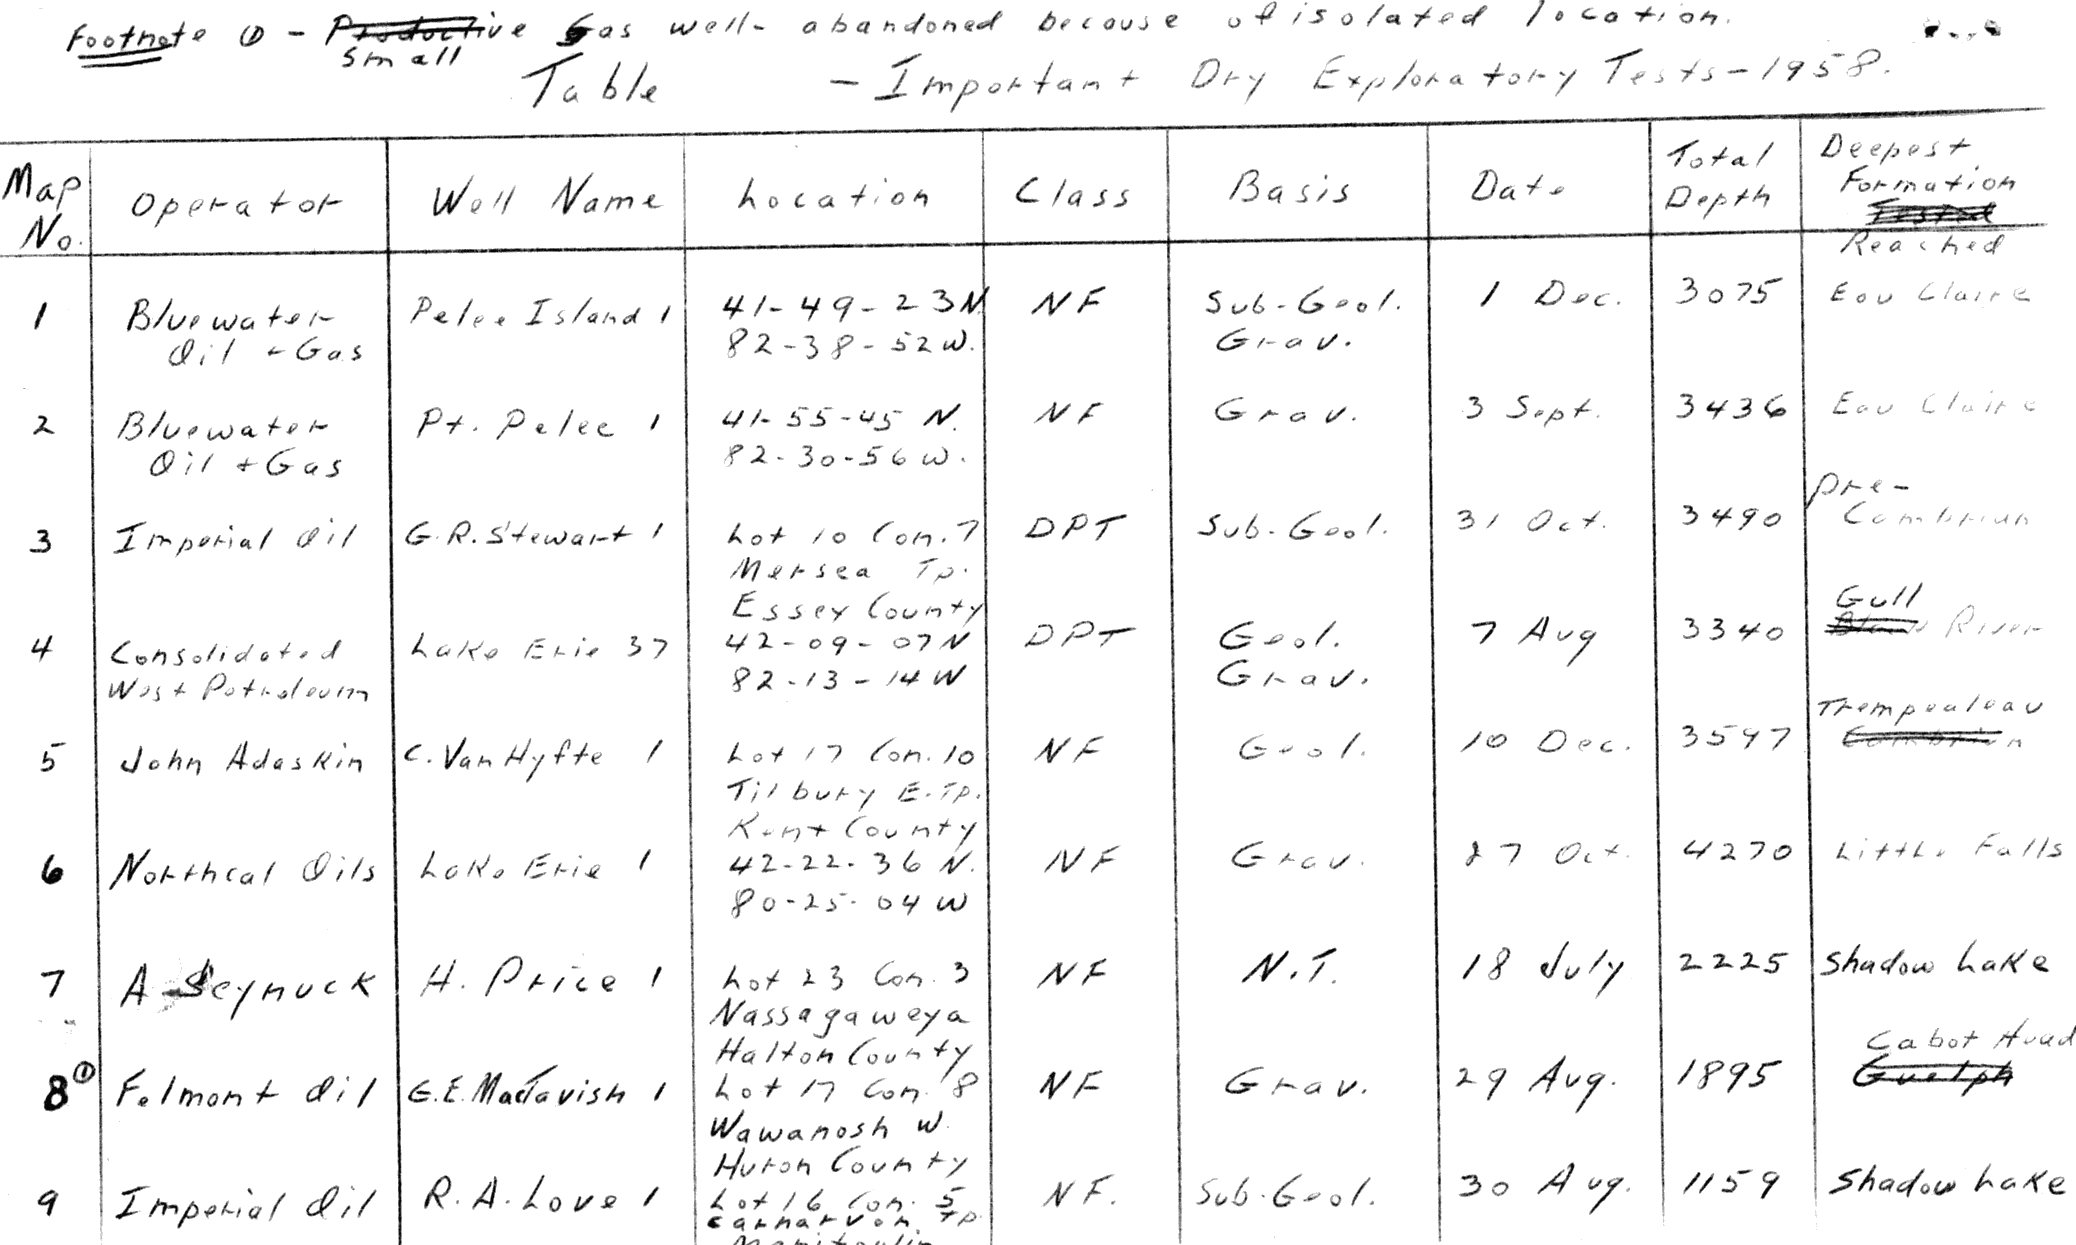 Footnote ① - Productive Gas well - abandoned because of isolated location.
Small
Table - Important Dry Exploratory Tests - 1958.
Map No. Operator Well Name Location Class Basis Date Total Depth Deepest Formation Tested Reached
1 Bluewater Pelee Island 1 41-49-23 N. NF Sub-Geol. 1 Dec. 3075 Eau Claire
Oil + Gas 82-38-52 W. Grav.
2 Bluewater Pt. Pelee 1 41-55-45 N. NF Grav. 3 Sept. 3436 Eau Claire
Oil + Gas 82-30-56 W.
Pre-
3 Imperial Oil G.R. Stewart 1 Lot 10 Con. 7 DPT Sub-Geol. 31 Oct. 3490 Cambrian
Mersea Tp.
Essex County Gull
4 Consolidated Lake Erie 37 42-09-07 N DPT Geol. 7 Aug 3340 River
West Petroleum 82-13-14 W Grav.
Trempealeau
5 John Adaskin C. Van Hyfte 1 Lot 17 Con. 10 NF Geol. 10 Dec. 3597 Cambrian
Tilbury E. Tp.
Kent County
6 Northcal Oils Lake Erie 1 42-22-36 N. NF Grav. 27 Oct. 4270 Little Falls
80-25-04 W
7 A Seynuck H. Price 1 Lot 23 Con. 3 NF N.T. 18 July 2225 Shadow Lake
Nassagaweya
Halton County Cabot Head
8① Felmont Oil E.E. MacTavish 1 Lot 17 Con. 8 NF Grav. 29 Aug. 1895 Guelph
Wawanosh W.
Huron County
9 Imperial Oil R.A. Love 1 Lot 16 Con. 5 NF. Sub-Geol. 30 Aug. 1159 Shadow Lake
Carnarvon Tp.
Manitoulin